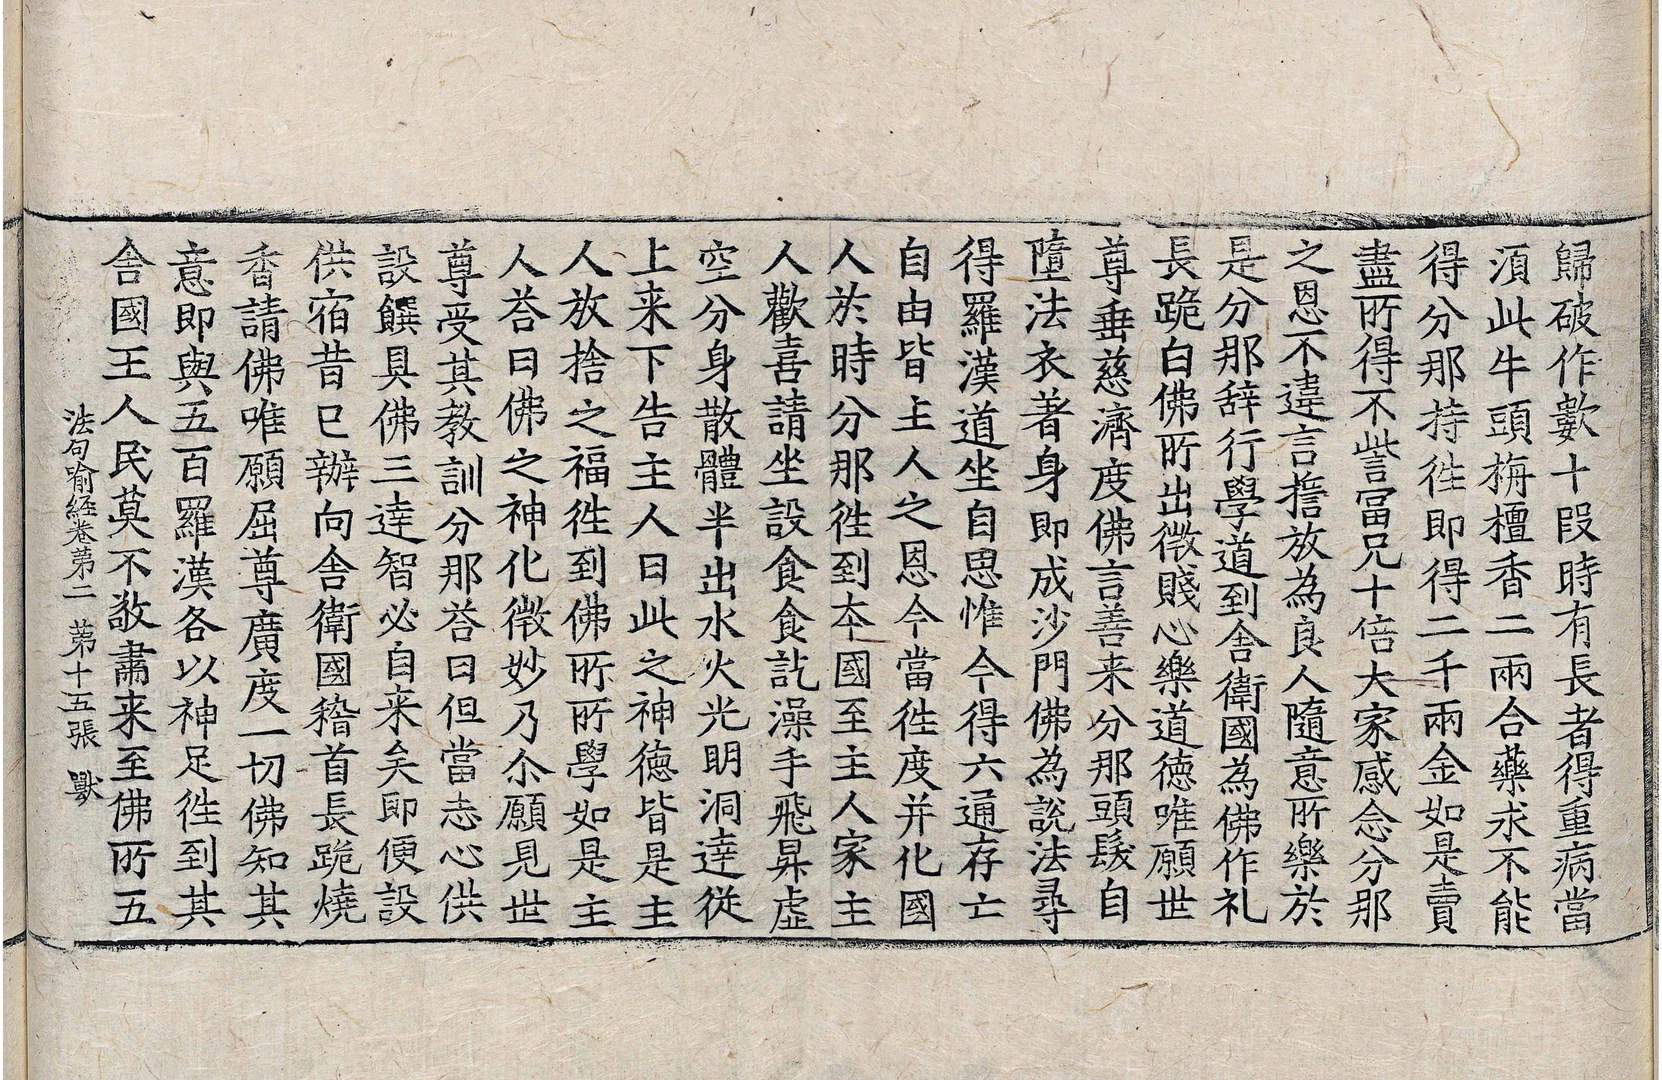 歸破作數十段時有長者得重病當
須此牛頭栴檀香二兩合藥求不能
得分那持徃即得二千兩金如是賣
盡所得不訾富兄十倍大家感念分那
之恩不違言擔放為良人隨意所樂於
是分那辞行學道到舍衛國為佛作礼
長跪白佛所出微賤心樂道德唯願世
尊垂慈濟度佛言善来分那頭髮自
墮法衣著身即成沙門佛為說法尋
得羅漢道坐自思惟今得六通存亡
自由皆主人之恩今當徃度并化國
人於時分那徃到本國至主人家主
人歡喜請坐設食食訖澡手飛昇虛
空分身散體半出水火光明洞達從
上来下告主人曰此之神德皆是主
人放捨之福徃到佛所所學如是主
人荅曰佛之神化微妙乃尒願見世
尊受其教訓分那荅曰但當志心供
設饌具佛三達智必自来矣即便設
供宿昔已辦向舍衛國稽首長跪燒
香請佛唯願屈尊廣度一切佛知其
意即與五百羅漢各以神足徃到其
舍國王人民莫不敬肅来至佛所五
法句喻経卷第二 第十五張 獸